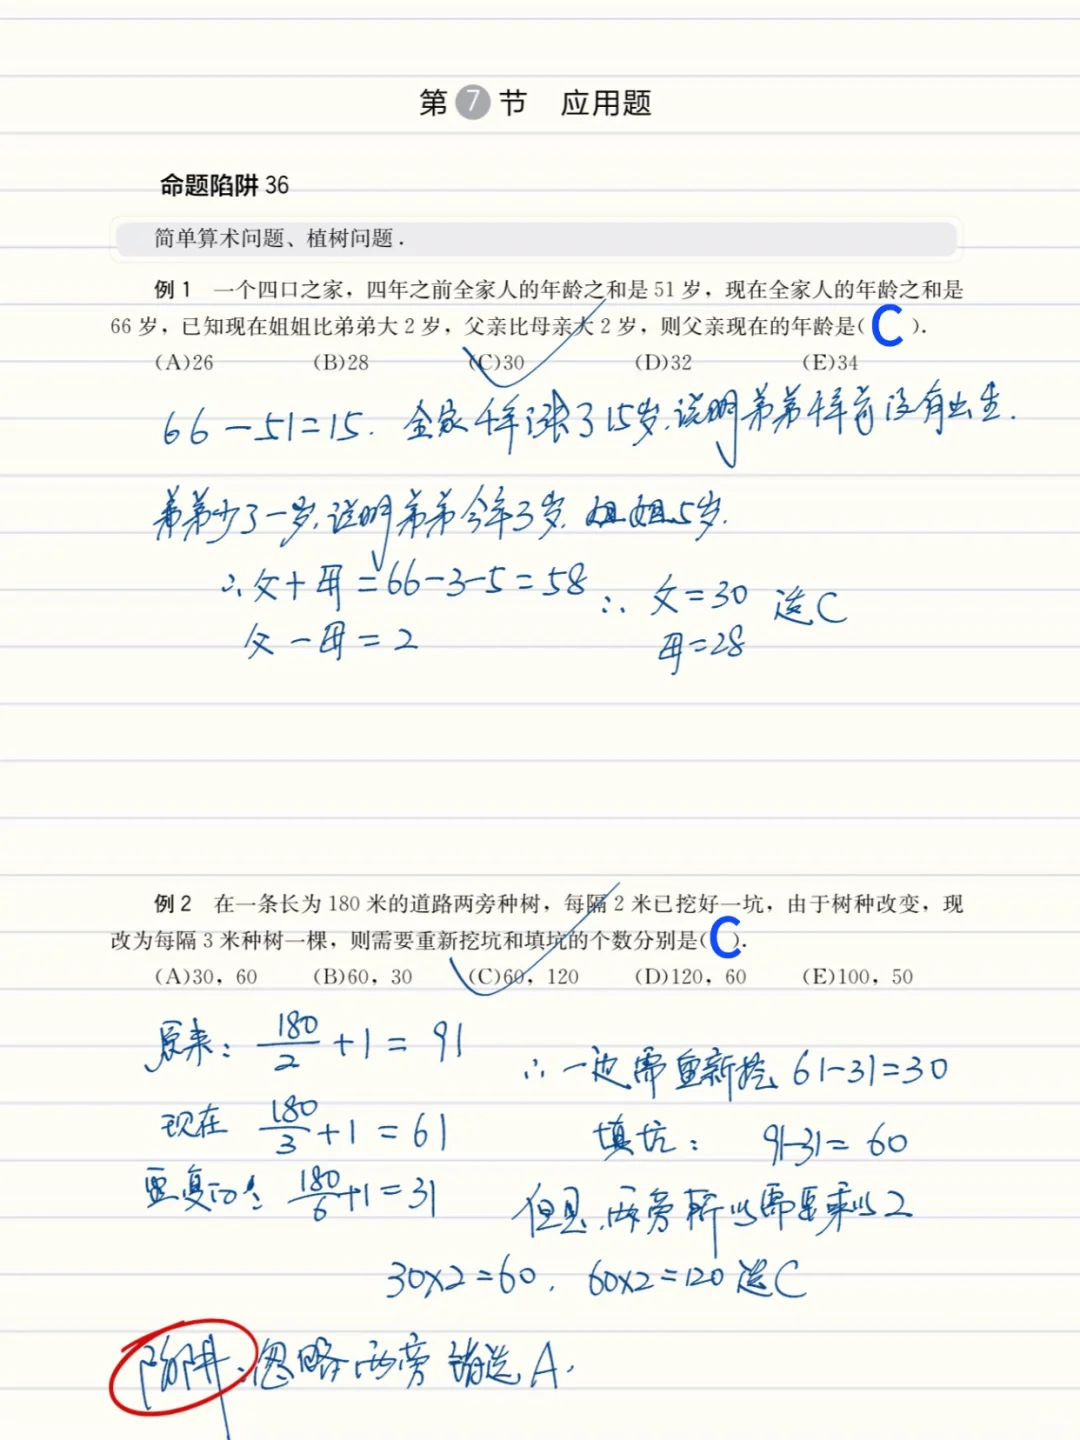 第7节 应用题
命题陷阱 36
简单算术问题、植树问题.
例 1 一个四口之家，四年之前全家人的年龄之和是 51 岁，现在全家人的年龄之和是
66 岁，已知现在姐姐比弟弟大 2 岁，父亲比母亲大 2 岁，则父亲现在的年龄是( C ).
(A)26 (B)28 (C)30 (D)32 (E)34
66-51=15. 全家4年涨了15岁,说明弟弟4年前没有出生.
弟弟少了一岁,说明弟弟今年3岁. 姐姐5岁.
∴父+母=66-3-5=58 ∴父=30 选C
父-母=2 母=28
例 2 在一条长为 180 米的道路两旁种树，每隔 2 米已挖好一坑，由于树种改变，现
改为每隔 3 米种树一棵，则需要重新挖坑和填坑的个数分别是( C ).
(A)30，60 (B)60，30 (C)60，120 (D)120，60 (E)100，50
原来: 180/2+1=91
∴一边需重新挖 61-31=30
现在 180/3+1=61
填坑: 91-31=60
重复的: 180/6+1=31
但是,两旁所以需要乘以2
30×2=60, 60×2=120 选C
陷阱:忽略两旁 错选A.